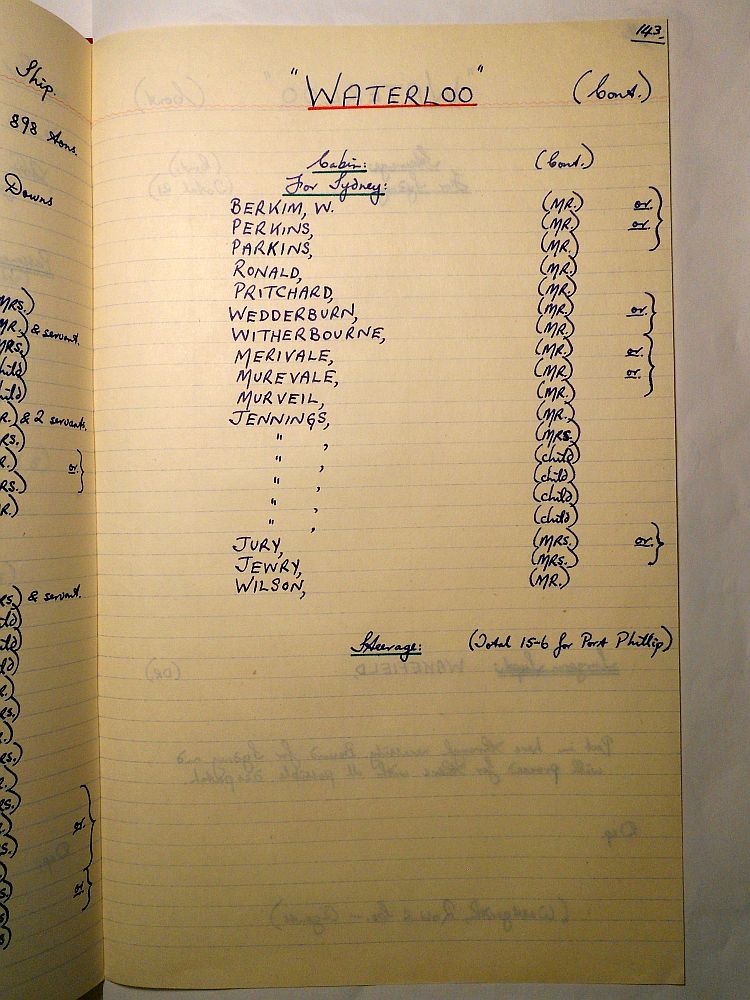 Ship.
898 tons.
Downs
MRS.)
MR.) & servant.
MRS.)
child)
child)
R.) & 2 servants.
RS.)
R.) or
RS.)
R.)
RS.) & servant.
or
or
143.
"WATERLOO" (Cont.)
Cabin: (Cont.)
For Sydney:
BERKIM, W. (MR.) or
PERKINS, (MR.) or
PARKINS, (MR.)
RONALD, (MR.)
PRITCHARD, (MR.)
WEDDERBURN, (MR.) or
WITHERBOURNE, (MR.)
MERIVALE, (MR.) or
MUREVALE, (MR.) or
MURVEIL, (MR.)
JENNINGS, (MR.)
" , (MRS.)
" , (child)
" , (child)
" , (child)
" , (child)
JURY, (MRS.) or
JEWRY, (MRS.)
WILSON, (MR.)
Steerage: (Total 15-6 for Port Phillip)